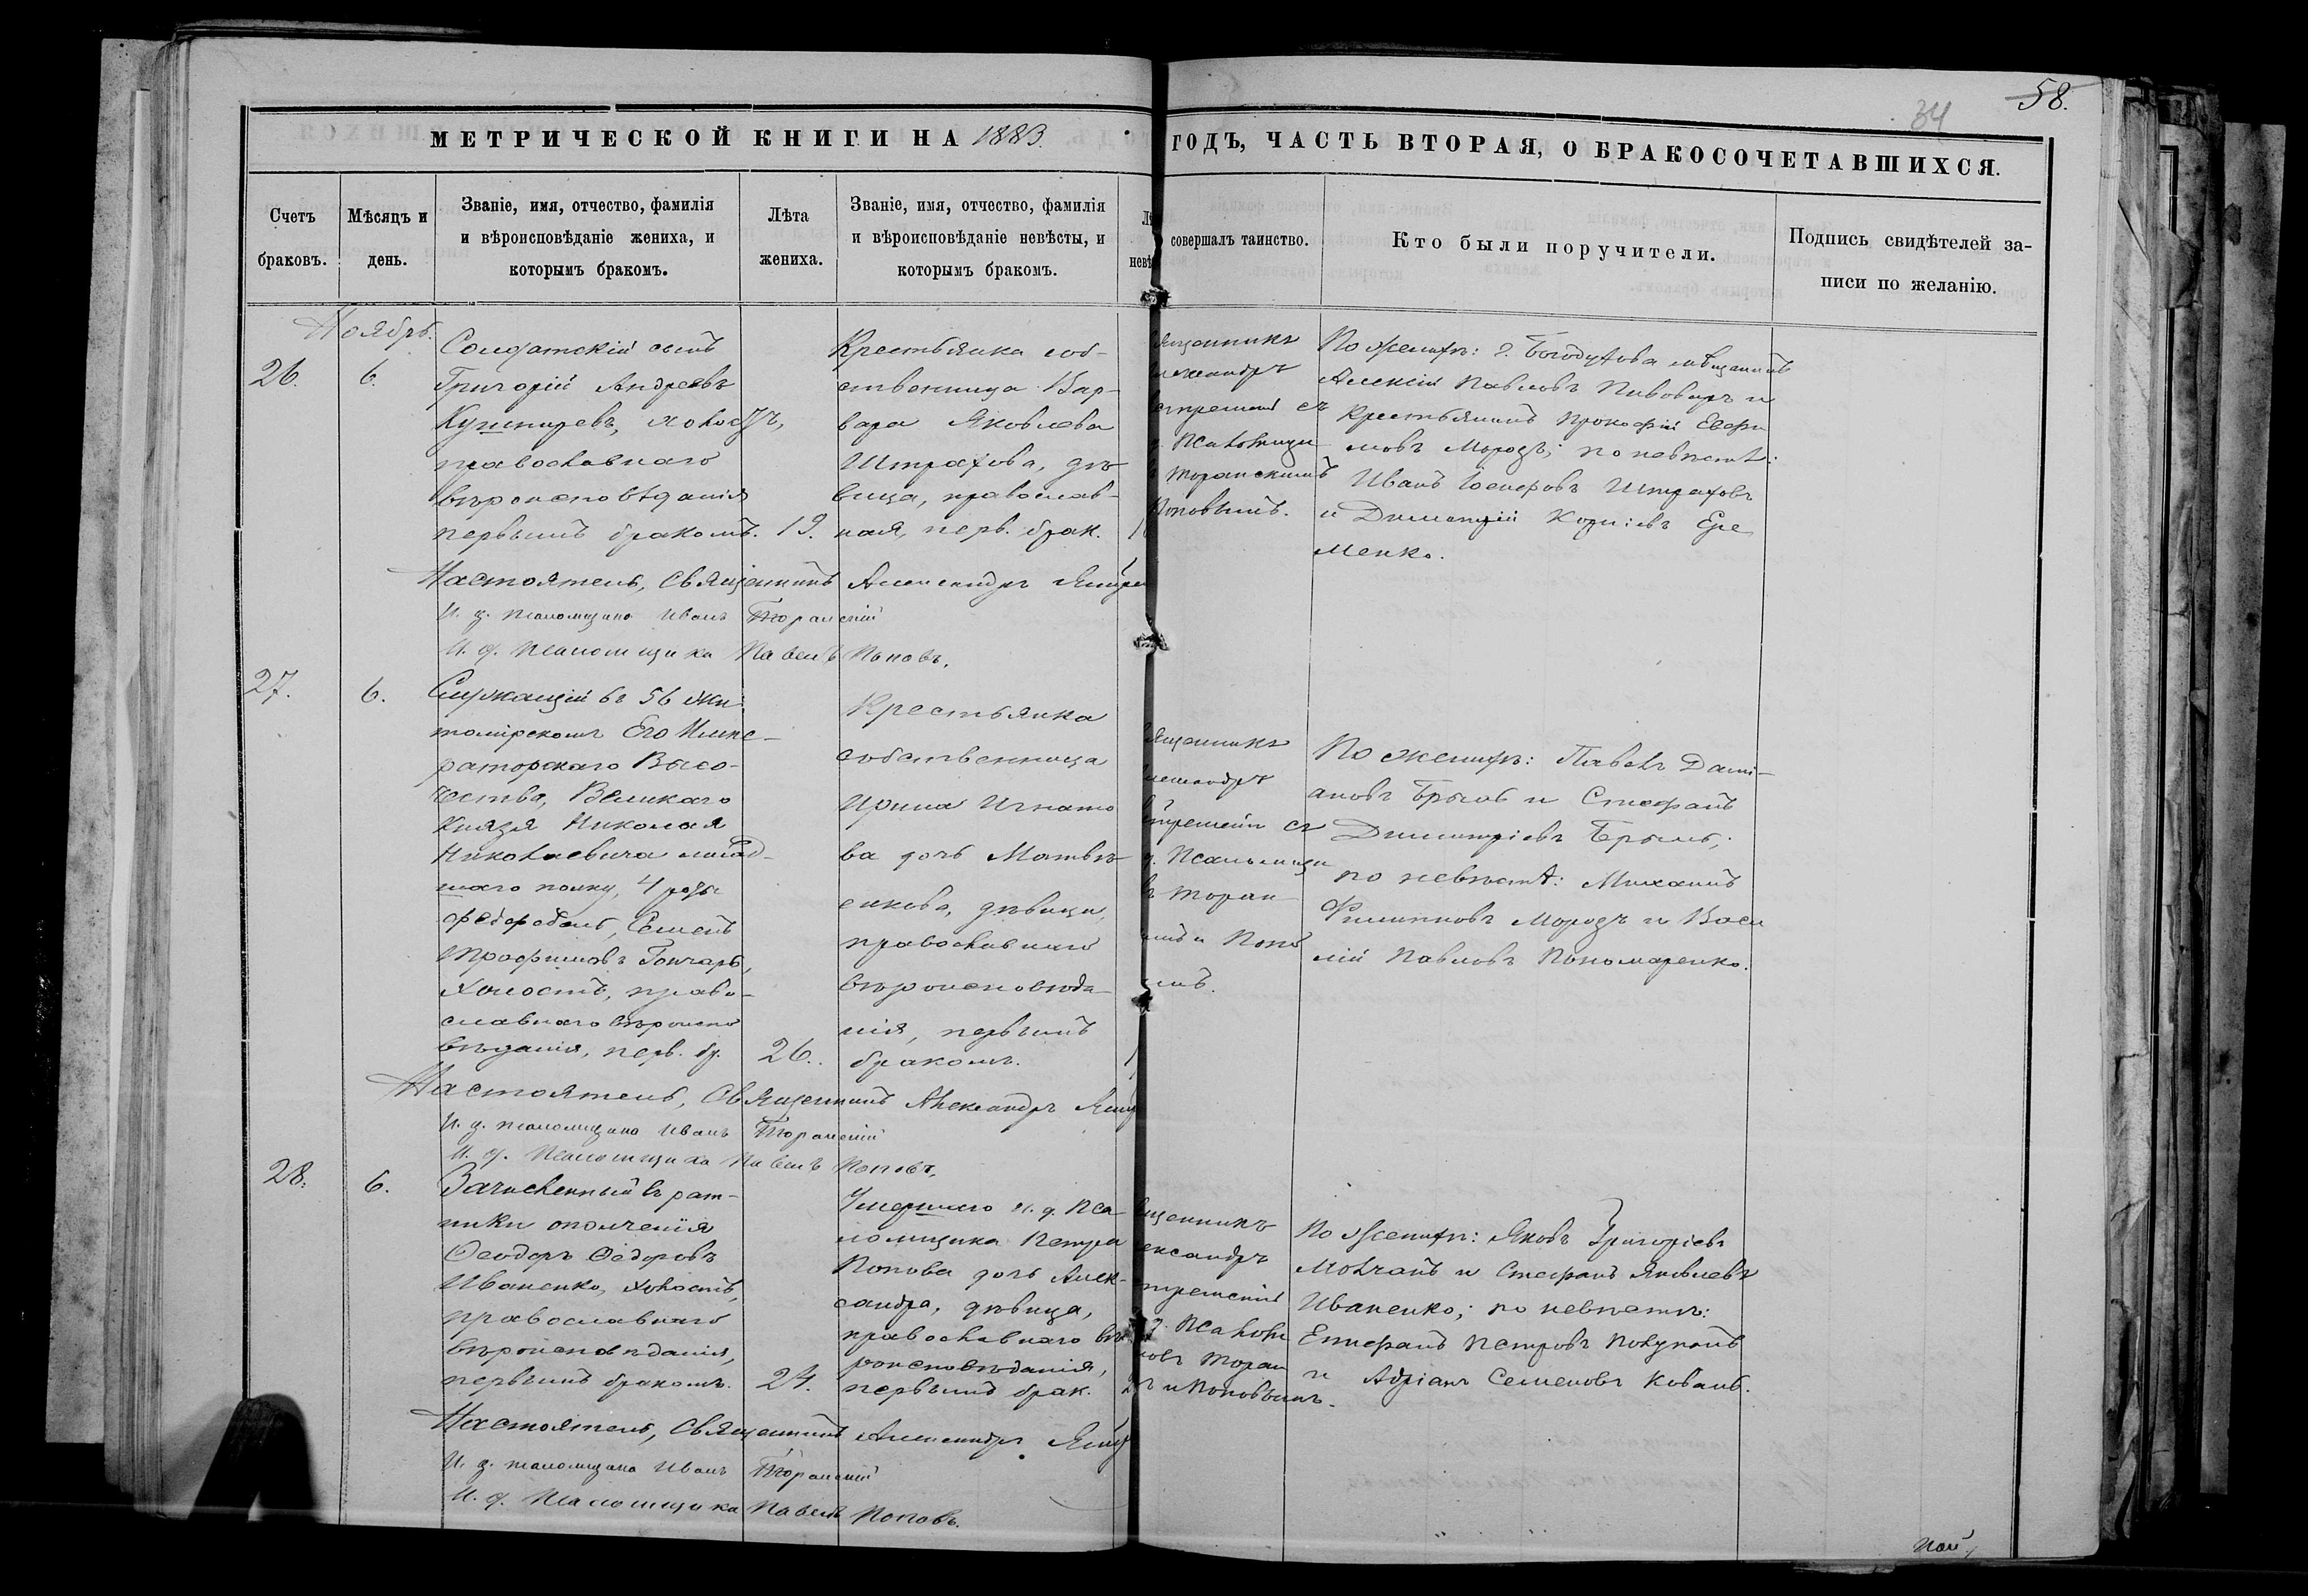 58.
34
МЕТРИЧЕСКОЙ КНИГИ НА 1883.
ГОДЪ, ЧАСТЬ ВТОРАЯ, О БРАКОСОЧЕТАВШИХСЯ.
Счетъ
браковъ.
Мѣсяцъ и
день.
Званіе, имя, отчество, фамилія
и вѣроисповѣданіе жениха, и
которымъ бракомъ.
Лѣта
жениха.
Званіе, имя, отчество, фамилія
и вѣроисповѣданіе невѣсты, и
которымъ бракомъ.
совершалъ таинство.
Кто были поручители.
Подпись свидѣтелей за-
писи по желанію.
Ноябрь.
26.
6.
Солдатскій сынъ
Григорій Андреевъ
Кушнаревъ, холостъ,
православнаго
вѣроисповѣданія
первымъ бракомъ.
19.
Крестьянка соб-
ственница Вар-
вара Яковлева
Штрахова, дѣ-
вица, православ-
ная, перв. брак.
ященникъ
лександръ
стремскій съ
д. Псаломщи
Торанскимъ
Поповымъ.
По женихѣ: г. Богодухова мѣщанинъ
Алексій Павловъ Пивоваръ и
крестьянинъ Прокофій Евфи
мовъ Морозъ; по невѣстѣ:
Иванъ Іосифовъ Штраховъ
и Димитрій Корніевъ Ере
менко.
Настоятель, Священникъ Александръ
И. д. псаломщика Иванъ Торанскій
И. д. Псаломщика Павелъ Поповъ.
27.
6.
Служащій въ 56 Жи
томірскомъ Его Импе-
раторскаго Высо-
чества, Великаго
Князя Николая
Николаевича млад-
шаго полку, 4 роты
фельдфебель, Семенъ
Трофимовъ Гончаръ,
холостъ, право-
славнаго вѣроиспо
вѣданія, перв. бр.
26.
Крестьянка
собственница
Ирина Игнато
ва дочь Матвѣ-
енкова, дѣвица,
православнаго
вѣроисповѣда-
нія, первымъ
бракомъ.
ященникъ
лександръ
стремскій съ
д. Псаломщи
Торан
имъ и Попо
ымъ.
По женихѣ: Павелъ Дамі-
ановъ Брыль и Стефанъ
Димитріевъ Брыль;
по невѣстѣ: Михаилъ
Филипповъ Морозъ и Васи
лій Павловъ Пономаренко.
Настоятель, Священникъ Александръ
И. д. псаломщика Иванъ Торанскій
И. д. Псаломщика Павелъ Поповъ.
28.
6.
Зачисленный въ рат-
ники ополченія
Ѳеодоръ Ѳедоровъ
Иваненко, холостъ,
православнаго
вѣроисповѣданія,
первымъ бракомъ.
24.
Умершаго и. д. Пса-
ломщика Петра
Попова дочь Алек-
сандра, дѣвица,
православнаго вѣ-
роисповѣданія,
первымъ брак.
щенникъ
ександръ
стремскій
д. Псалом
Торан
ъ и Поповымъ.
По женихѣ: Яковъ Григоріевъ
Молчанъ и Стефанъ Яковлевъ
Иваненко; по невѣстѣ:
Епифанъ Петровъ
и Адріанъ Семеновъ Коваль.
Настоятель, Священникъ Александръ
И. д. псаломщика Иванъ Торанскій
И. д. Псаломщика Павелъ Поповъ.